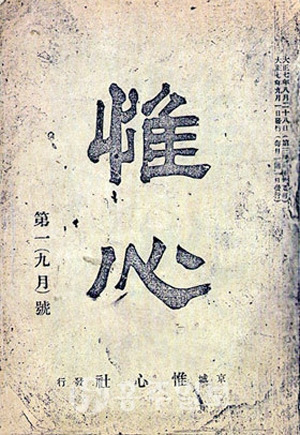 大正七年八月二十八日(第三
大正七年九月一日發行(每月一回一日發行)
惟心
第一九月)號
京城 惟心社 發行